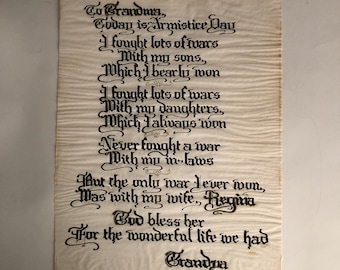 To Grandma,
Today is Armistice Day
I fought lots of wars
With my sons,
Which I bearly won
I fought lots of wars
With my daughters,
Which I always won
Never fought a war
With my in-laws
But the only war I ever won,
Was with my wife, Regina
God bless her
For the wonderful life we had
Grandpa